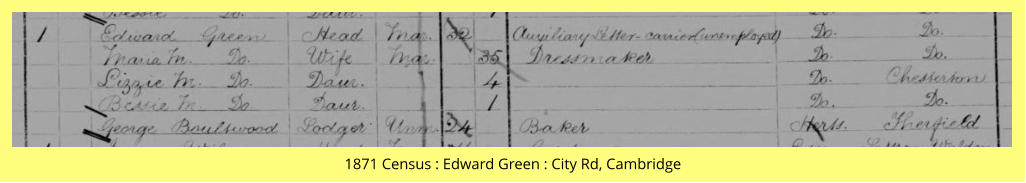 Bessie Do. Daur. 1
1 Edward Green Head Mar. 32 Auxiliary Letter-carrier (unemployed) Do. Do.
Maria M. Do. Wife Mar. 35 Dressmaker Do. Do.
Lizzie M. Do. Daur. 4 Do. Chesterton
Bessie M. Do. Daur. 1 Do. Do.
George Boultwood Lodger Unm. 24 Baker Herts. Therfield
1871 Census : Edward Green : City Rd, Cambridge